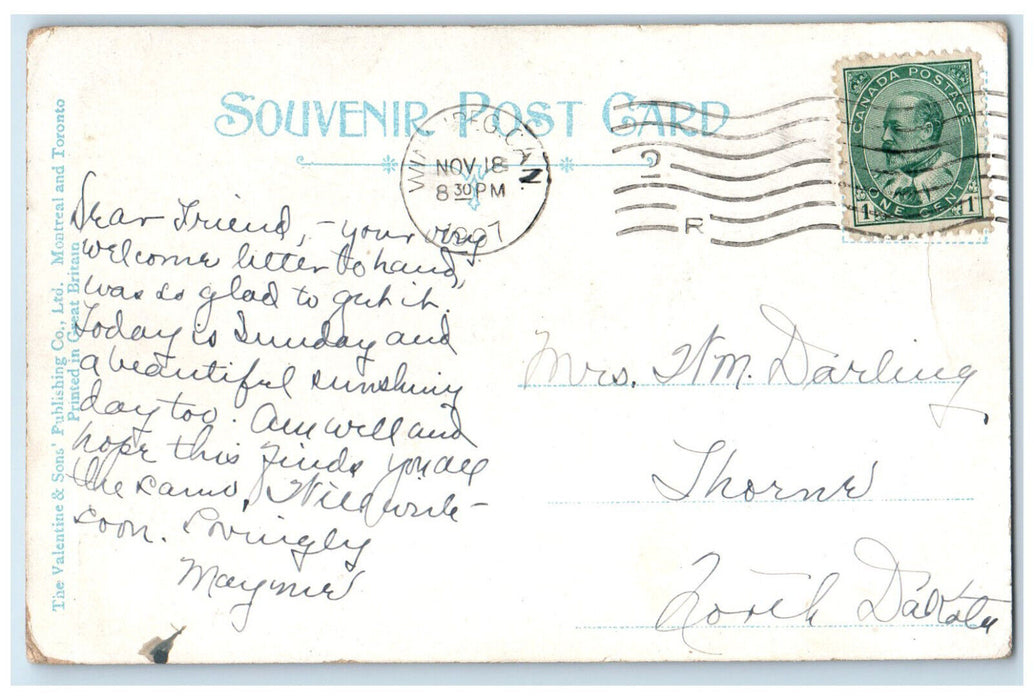 SOUVENIR POST CARD
WINNIPEG, CAN.
NOV 18
8 30 PM
1907
2
R
CANADA POSTAGE
1 ONE CENT 1
The Valentine & Sons' Publishing Co., Ltd. Montreal and Toronto
Printed in Great Britain
Dear Friend, - your very
welcome letter to hand,
was so glad to get it.
Today is Sunday and
a beautiful sunshiny
day too. Am well and
hope this finds you all
the same. Will write -
soon. Lovingly
Mayme
Mrs. Wm. Darling,
Thorne
North Dakota